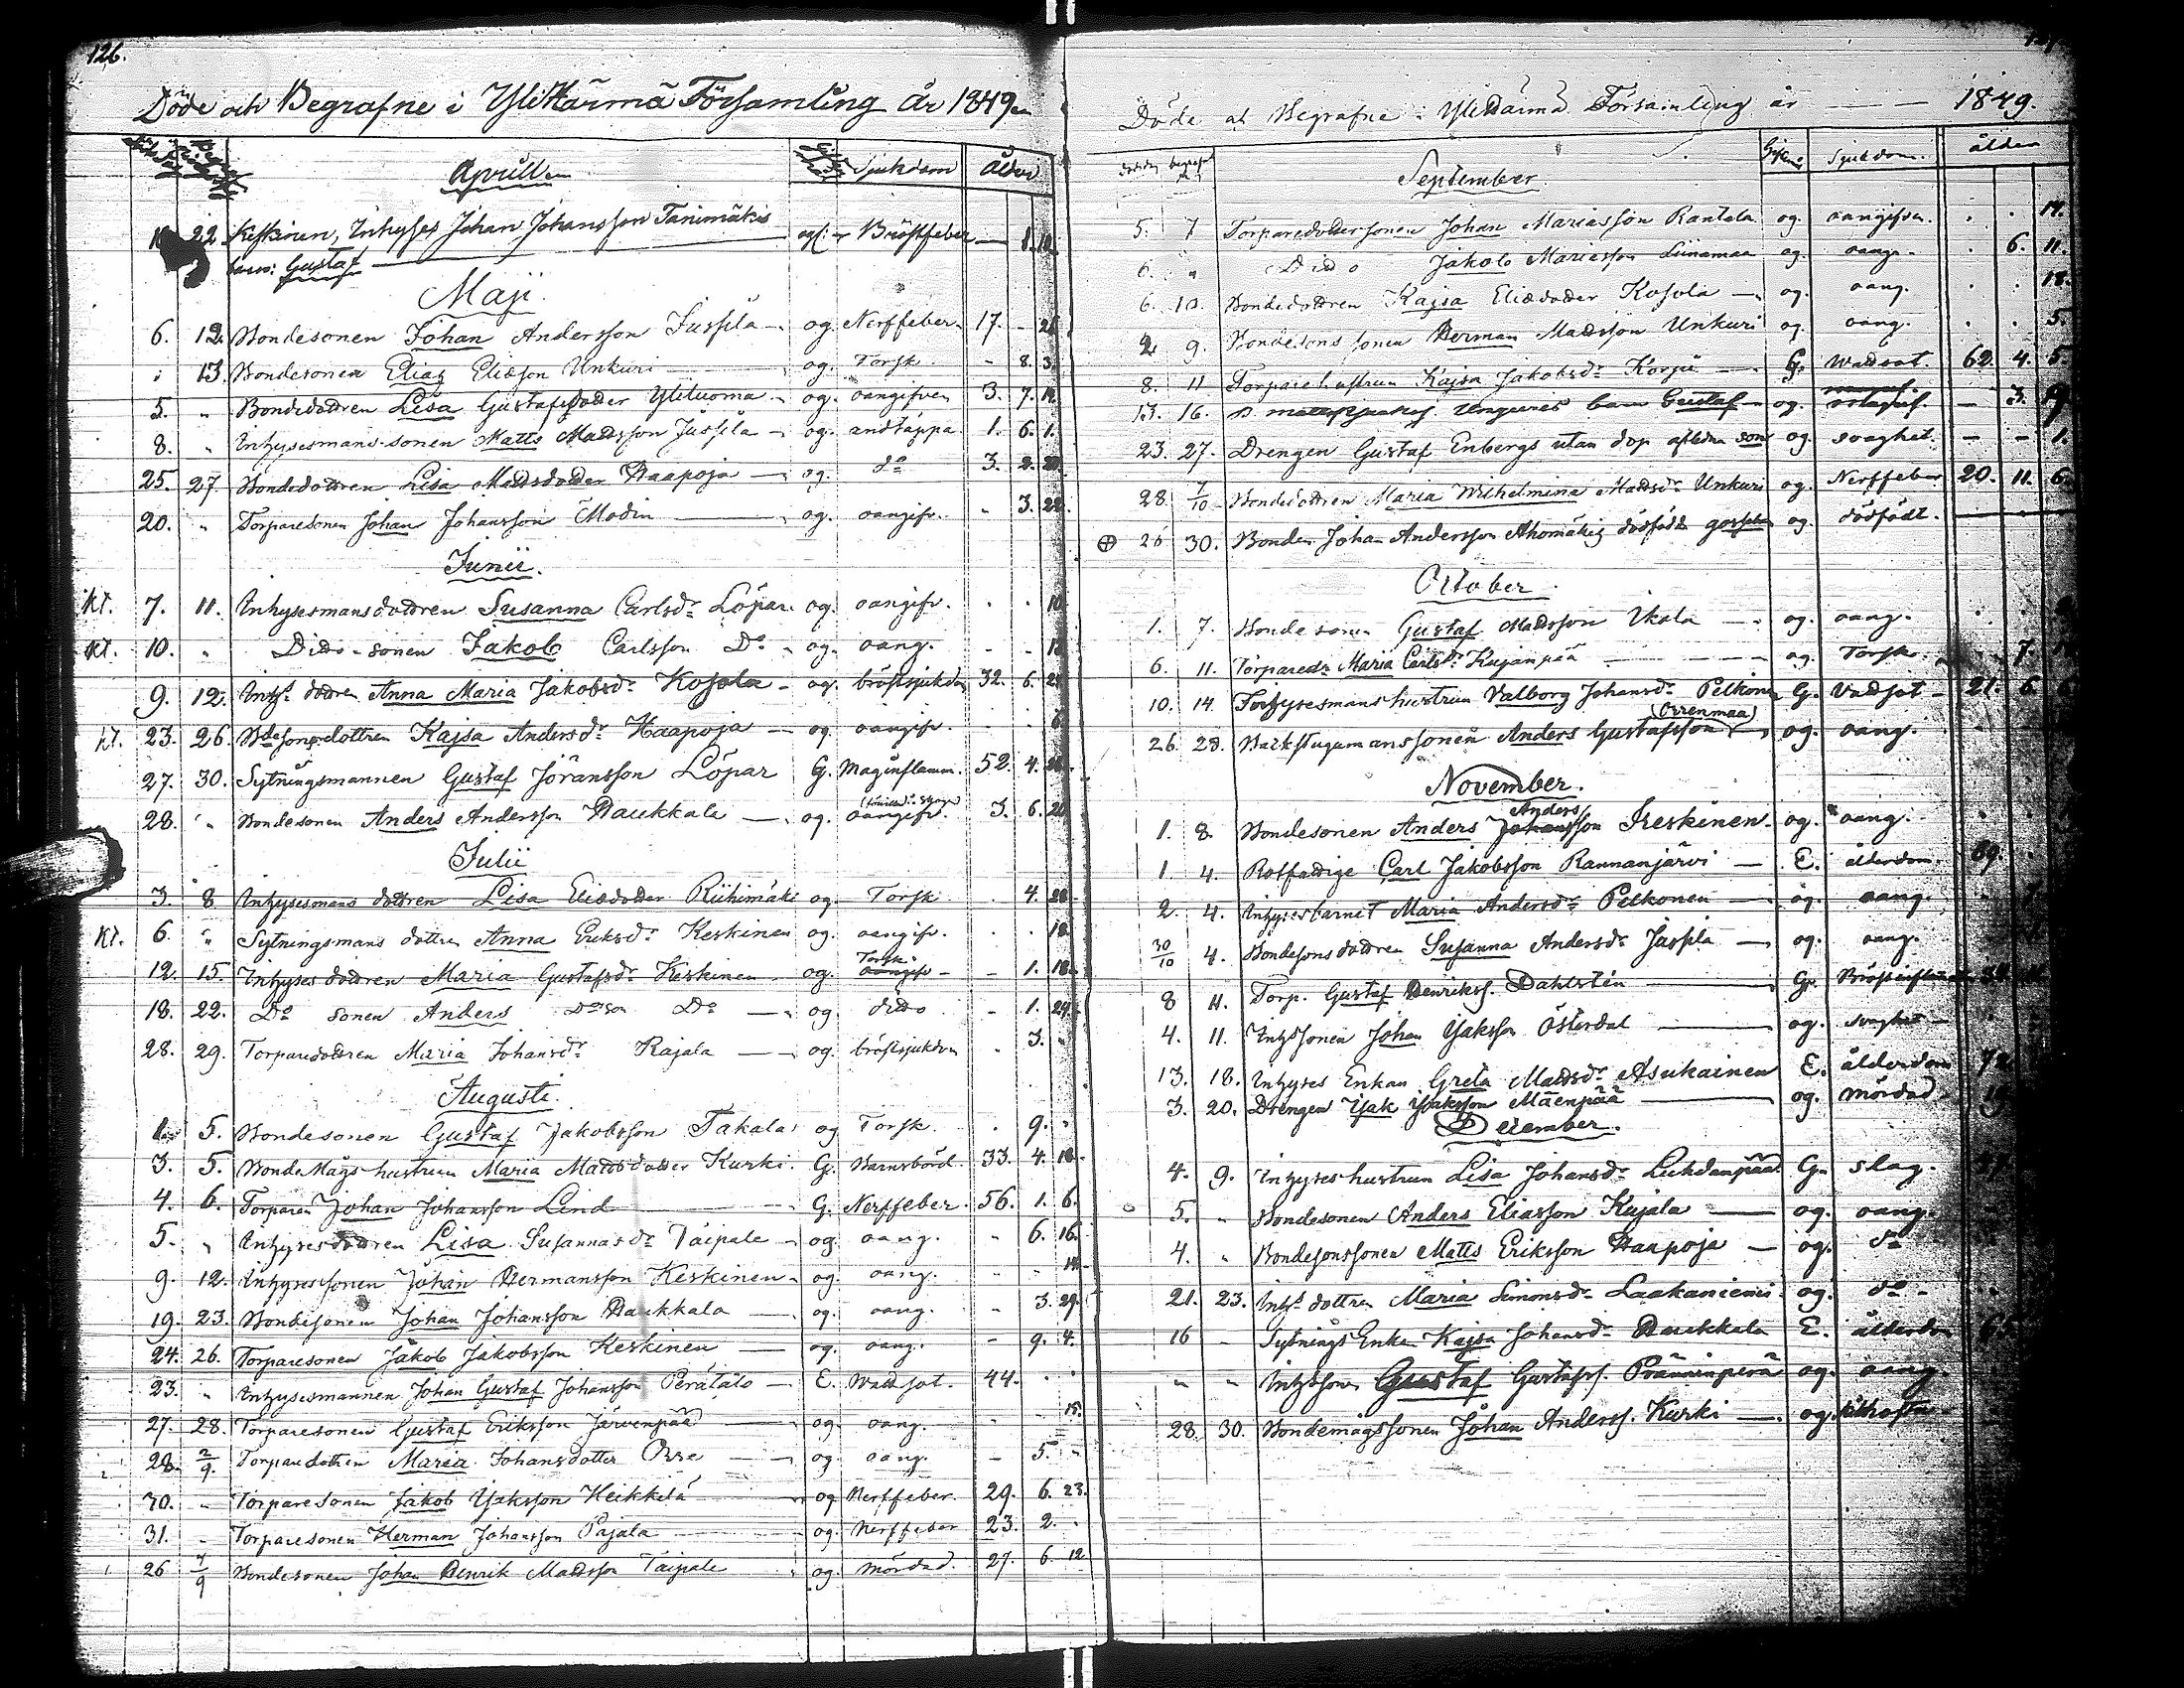 126.
Döde och Begrafne i Ylikärmä Församling år 1849
Aprill
Sjukdom
Ålder
22 Keskinen, Inhyses Johan Johansson Tanimäkis og. Bröstfeber
barn: Gustaf
Maji.
6. 12. Bondesonen Johan Andersson Jussila og. Nerffeber. 17. - 26
13. Bondesonen Elias Eliæson Unkuri og. Torsk. - 8. 3.
5. " Bondedottren Lisa Gustafsdotter Yliluoma og. oangifven 3. 7. 12.
8. " Inhysesmans sonen Matts Mattsson Jussila og. andtäppa 1. 6. 1.
25. 27 Bondedottren Lisa Mattsdotter Haapoja og. do 3. 2.
20. " Torparesonen Johan Johansson Modin og. oangifv. - 3. 22.
Junii.
kt. 7. 11. Inhysesmansdottren Susanna Carlsdr Löpar. og. oangifv. . . 10.
kt. 10. " Dido-sonen Jakob Carlsson Do og. oang. - -
9. 12. Inhs dottren Anna Maria Jakobsdr Kosola og. bröstsjukdm 32. 6.
kt. 23. 26. Bdesonsdottren Kajsa Andersdr Haapoja og. oangifv.
27. 30. Sytningsmannen Gustaf Jöransson Löpar G. Maginflamm. 52. 4.
28. " Bondesonen Anders Andersson Haukkala og. oangifv. 3. 6. 20
Julii
3. 8 Inhysesmans dottren Lisa Eliædotter Riihimäki og. Torsk . 4. 28
kt. 6. " Sytningsmans dottren Anna Eriksdr Keskinen og. oangifv. . . 12
Torsk.
12. 15. Inhyses dottren Maria Gustafsdr Keskinen og. oangifv - - 1. 18.
18. 22. Do sonen Anders Do son Do og dido - 1. 24.
28. 29. Torparedottren Maria Johansdr Rajala og. bröstsjukdm . 3.
Augusti.
5. Bondesonen Gustaf Jakobsson Takala og Torsk. . 9.
3. 5. Bonde Mågs hustrun Maria Mattsdotter Kurki. G. Barnsbörd. 33. 4. 18.
4. 6. Torparen Johan Johansson Lind G. Nerffeber. 56. 1. 6.
5. " Inhysesdottren Lisa Susannasdr Taipale og oang. - 6. 16.
9. 12. Inhysessonen Johan Hermansson Keskinen og. oang. - - 14.
19. 23. Bondesonen Johan Johansson Haukkala og. oang. - 3. 29.
24. 26. Torparesonen Jakob Jakobsson Keskinen og. oang. - 9. 4.
23. " Inhysesmannen Johan Gustaf Johansson Perätalo E. Wattsot. 44. . .
27. 28. Torparesonen Gustaf Eriksson Järvenpää og. oang. - 15.
28. 2/9. Torparedottren Maria Johansdotter Orre og. oang. - 5. "
30. " Torparesonen Jakob Isaksson Heikkilä og Nerffeber. 29. 6. 23.
31. " Torparesonen Herman Johansson Pajala og. Nerffeber 23. 2. .
26 7/9 Bondesonen Johan Henrik Mattsson Taipale og. mördad. 27. 6. 12
Döde och Begrafne i Ylikärmä Församling år 1849.
September
Sjukdom.
ålder
5. 7 Torparedottersonen Johan Mariasson Rantala og. oangifven. . . 14.
6. " Dido Jakob Mariasson Liinamaa og. oang. . 6. 11.
6. 10. Bondedottren Kajsa Eliædotter Kosola og. oang. . . 18.
9. Bondesons sonen Herman Mattsson Unkuri og. oang. . . 5.
8. 11 Torparehustrun Kajsa Jakobsdr Korpi G. Wattsot. 62. 4. 5.
13. 16. Unguris barn Gustaf og. - 3.
23. 27. Drengen Gustaf Enbergs utan dop aflidna son og svaghet. - - 1.
28. 7/10 Bondedottren Maria Wilhelmina Mattsdr Unkuri og. Nerffeber 20. 11. 6.
26 30. Bonden Johan Andersson Ahomäkis dödfödda gossebn og. dödfödt.
October.
1. 7. Bondesonen Gustaf Mattsson Ikola og. oang.
6. 11. Torparedr Maria Carlsdr Kujanpää og. Torsk. 7.
10. 14. Inhysesmans hustrun Valborg Johansdr Pelkonen G. Vattsot 21. 6
(Orrenmaa)
26. 28. Backstugumanssonen Anders Gustafsson og. oang.
November.
Anders
1. 8. Bondesonen Anders Johansson Keskinen og. oang.
1 4. Rotfattige Carl Jakobsson Rannanjärvi E. ålderdom. 69.
2. 4. Inhysesbarnet Maria Andersdr Pelkonen og. oang.
30/10 4. Bondesonsdottren Susanna Andersdr Jussila og. oang.
8 11. Torp. Gustaf Henrikss. Dahlstén G.
4. 11. Inhs sonen Johan Isaksson Österdal og. svaghet
13. 18. Inhyses Enkan Greta Mattsdr Asukainen E. ålderdom 72
3. 20. Drengen Isak Isaksson Mäenpää og. mördad
December.
4. 9. Inhyseshustrun Lisa Johansdr Luhdanpää G. slag.
5. " Bondesonen Anders Eliasson Kujala og. oang.
4. " Bondesonssonen Matts Eriksson Haapoja og. do
21. 23. Inhs dottren Maria Simonsdr Laakaniemi og. do
16 - Sytnings Enkan Kajsa Johansdr Haukkala E. ålderdm
" " Inhs sonen Gustaf Gustafss. Pränninperä og. oang.
28. 30. Bondemågssonen Johan Anderss. Kurki og. kikhosta